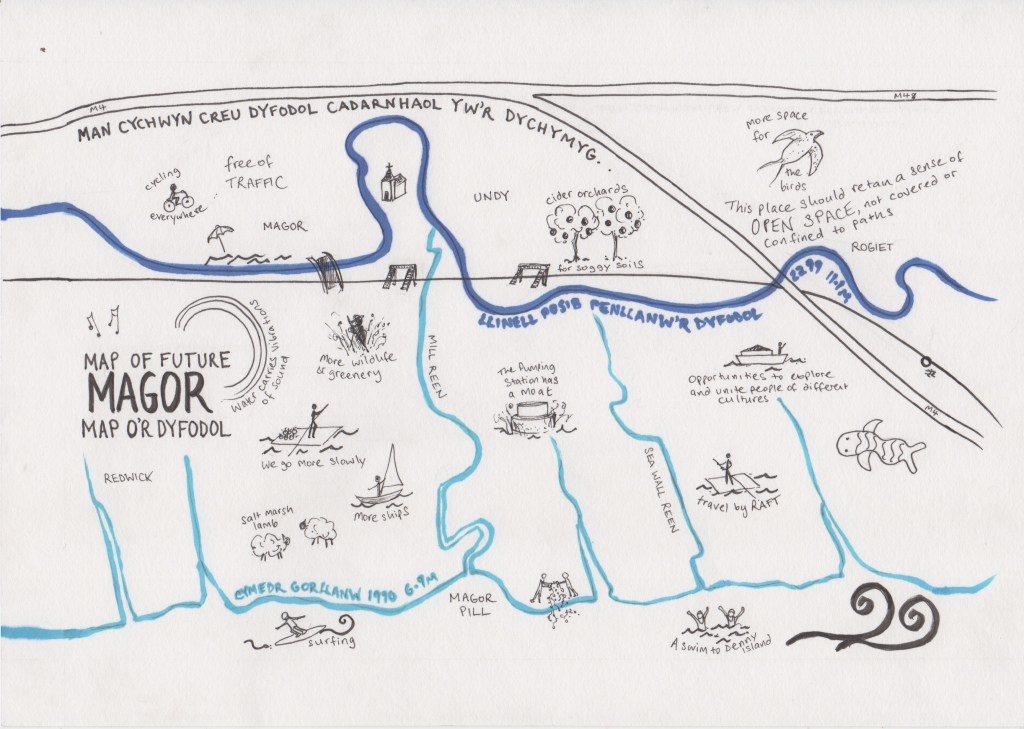 M4
M48
MAN CYCHWYN CREU DYFODOL CADARNHAOL YW'R DYCHYMYG.
more space
for
the
birds
cycling
everywhere
free of
TRAFFIC
MAGOR
UNDY
cider orchards
for soggy soils
This place should retain a sense of
OPEN SPACE, not covered or
confined to paths
ROGIET
2299 11.9M
LLINELL POSIB PENLLANW'R DYFODOL
MAP OF FUTURE
MAGOR
MAP O'R DYFODOL
Water carries vibrations
of sound
More wildlife
& greenery
MILL REEN
The Pumping
Station has
a moat
Opportunities to explore
and unite people of different
cultures
M4
REDWICK
We go more slowly
More ships
SEA WALL REEN
travel by RAFT
salt marsh
lamb
CYMEDR GORLLANW 1990 6.9M
MAGOR
PILL
surfing
A swim to Denny
island